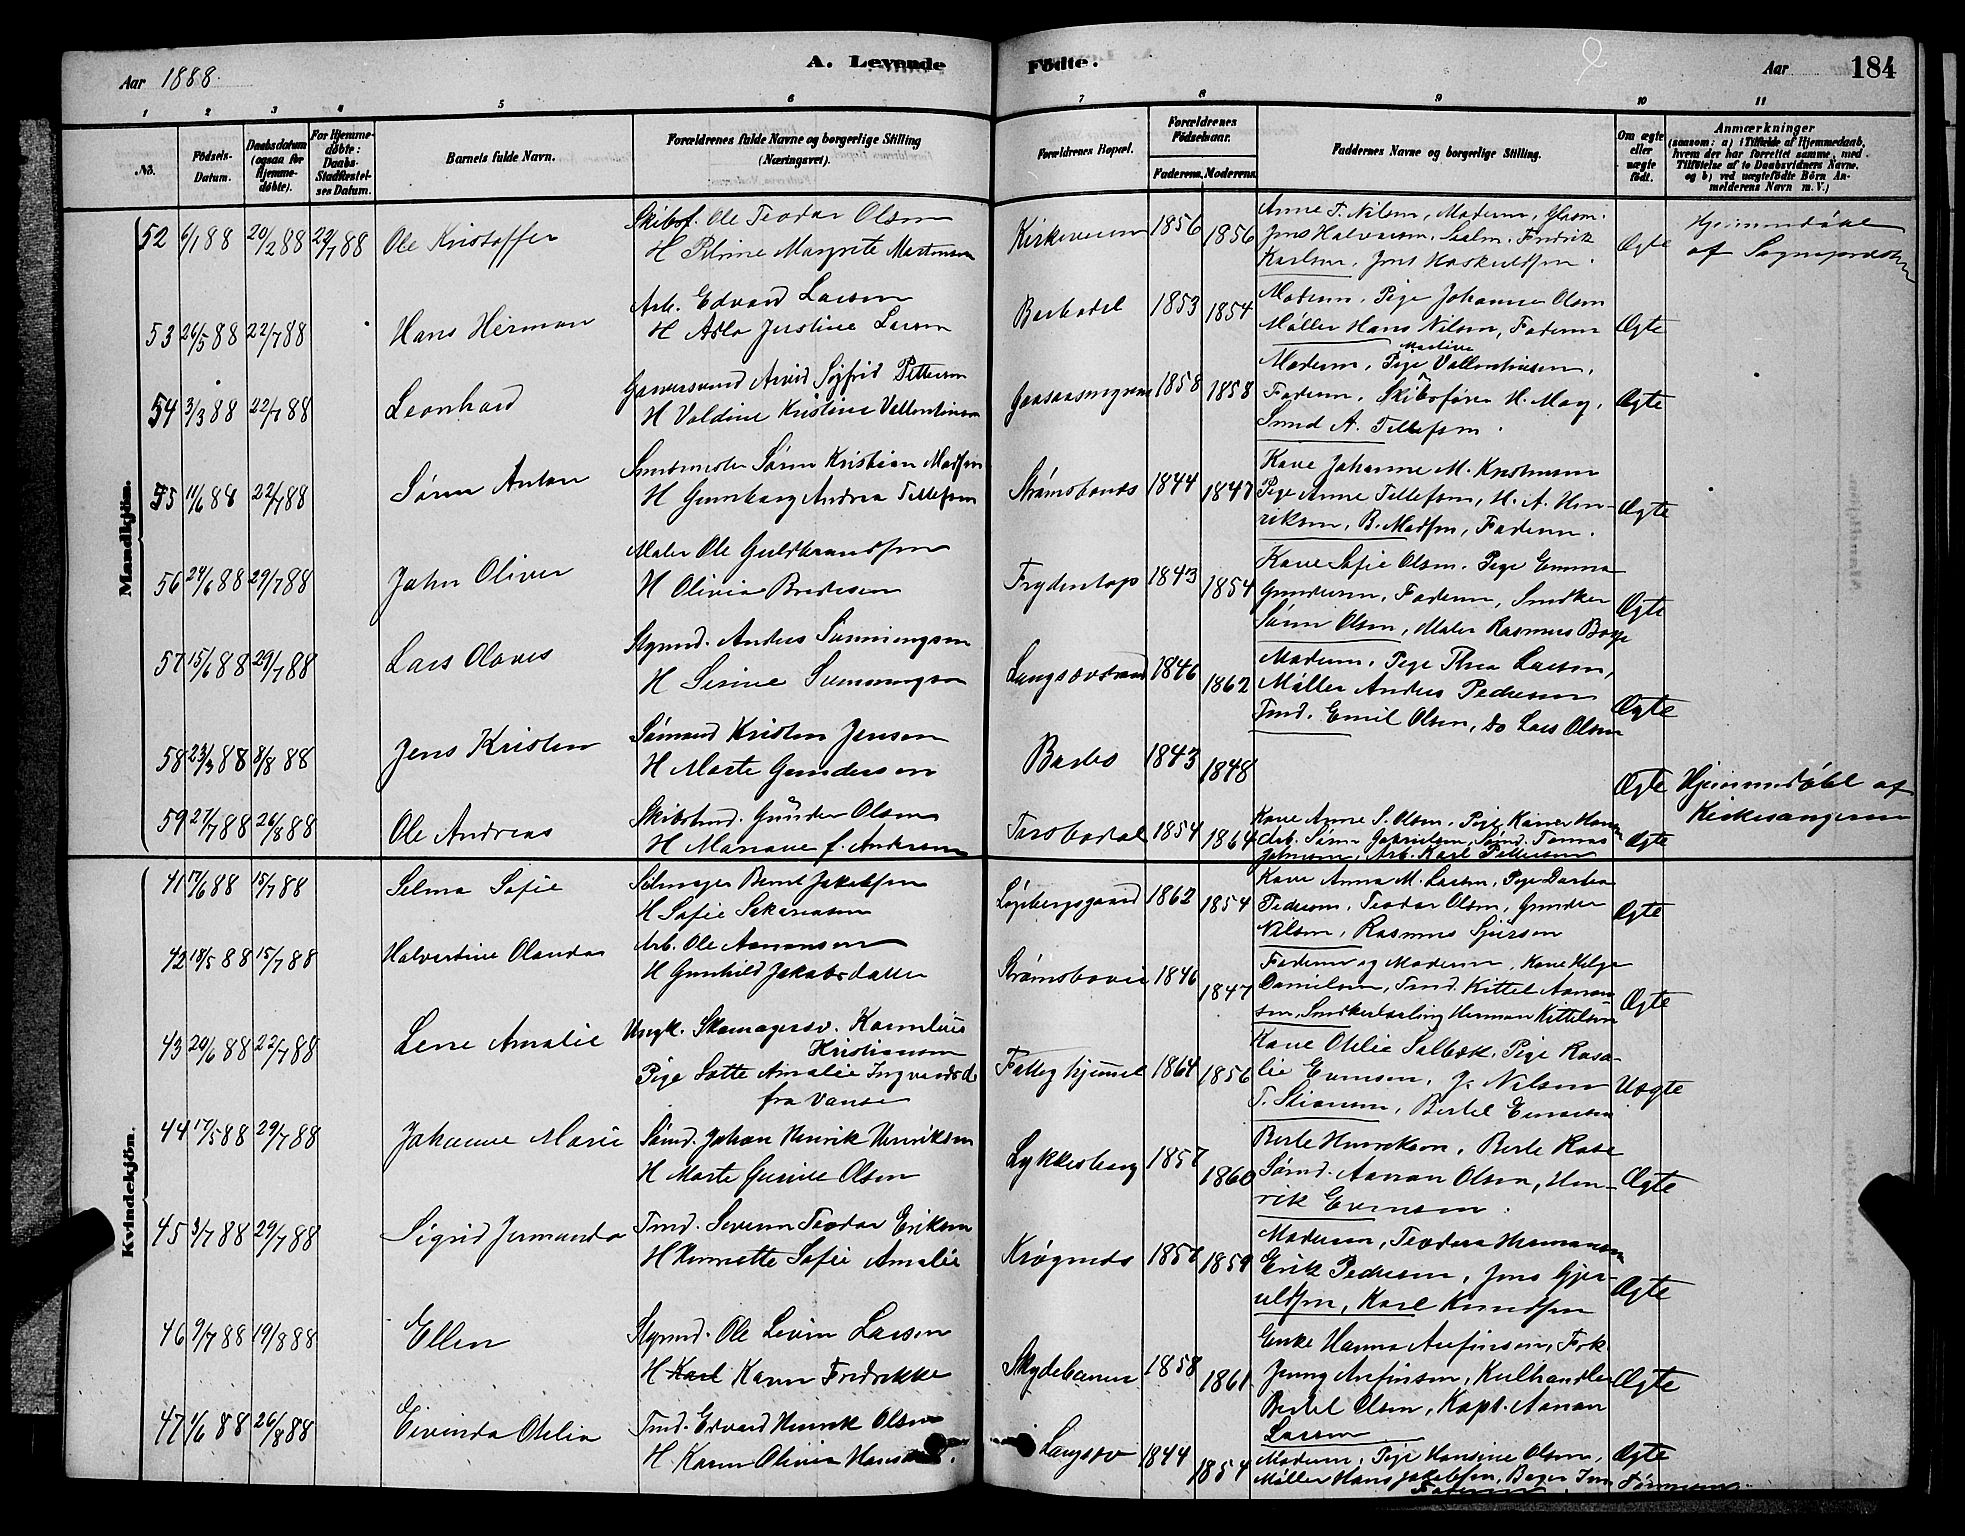 Aar 1888. A. Levende Födte. Aar 184
1 2 3 4 5 6 7 8 9 10 11
No. Födsels-Datum. Daabsdatum (ogsaa for Hjemme-døbte). For Hjemme-døbte: Daabs-Stadfæstel-ses Datum. Barnets fulde Navn. Forældrenes fulde Navne og borgerlige Stilling (Næringsvei). Forældrenes Bopæl. Forældrenes Födselsaar. Faderens. Moderens. Faddernes Navne og borgerlige Stilling. Om ægte eller uægte födt. Anmærkninger (saasom: a) i Tilfælde af Hjemmedaab, hvem der har forrettet samme, med Tilföielse af to Daabsvidners Navne, og b) ved uægtefödte Börn An-melderens Navn m. V.)
Mandkjön.
52 6/1 88 20/2 88 29/7 88 Ole Kristoffer
Ole Teodor Olsen
H Petrine Margrete Mortensen
Kirkeveien 1856 1856
Anne T. Nilsen, Moderen,
Jens Halvorsen, Fredrik
Karlsen, Jens
Ægte
Hjemmedøbt
af Sognepræsten
53 26/5 88 22/7 88 Hans Herman
Arb. Edvard Larsen
H Asta Justine Larsen
Barbodal 1853 1854
Moderen, Pige Johanne Olsen
Møller Hans Nilsen, Faderen
Ægte
54 3/3 88 22/7 88 Leonhard
Garversvend Arvid Sigfrid Pettersen
H Valdine Kristine Vallentinsen
1858 1858
Moderen, Pige Vallentinsen,
Faderen, Skibsfører H. May,
Smed A. Tellefsen.
Ægte
55 11/6 88 22/7 88 Søren Anton
Smedmester Søren Kristian Madsen
H Gunborg Andrea Tellefsen
Strømsbunds 1844 1847
Kone Johanne M. Kristensen
Pige Anne Tellefsen, H. A. Hen-
riksen, B. Madsen, Faderen.
Ægte
56 24/6 88 29/7 88 John Oliver
Maler Ole Guldbrandsen
H Olivia Bredesen
Frydentop 1843 1854
Kone Sofie Olsen, Pige Emma
Gundersen, Faderen, Snedker
Søren Olsen, Maler Rasmus Boye
Ægte
57 15/6 88 29/7 88 Lars Olaves
Stymd. Anders Svenningsen
H Serine Svenningsen
Langsævstrand 1846 1862
Moderen, Pige Thea Larsen,
Møller Anders Pedersen
Tmd. Emil Olsen, Do Lars Olsen
Ægte
58 23/3 88 3/8 88 Jens Kristen
Sømand Kristen Jensen
H Marte Gundersen
Barbo 1843 1848
Ægte
Hjemmedøbt af
Kirkesangeren
59 27/7 88 26/8 88 Ole Andreas
Gunder Olsen
H Mariane f. Andersen
Torsbudal 1854 1864
Kone Anne S. Olsen, Pige Karen Hansen
Arb. Søren Gabrielsen, Sømd. Tomas
Johnsen, Arb. Karl Pettersen
Ægte
Kvindekjön.
41 17/6 88 15/7 88 Selma Sofie
Seilmager Bernt Jakobsen
H Sofie Sakariasen
Løgebergsgaard 1862 1854
Kone Anna M. Larsen, Pige Dorthea
Pedersen, Teodor Olsen, Gunder
Nilsen, Rasmus Syversen
Ægte
42 18/5 88 15/7 88 Halvertine Olanda
Arb. Ole Aanonsen
H Gunhild Jakobsdatter
Strømsboveie 1846 1847
Faderen og Moderen, Kone Helga
Danielsen, Tmd. Kittel Aanon-
sen, Snedkerlærling Herman Kittelsen
Ægte
43 20/6 88 22/7 88 Lene Amalie
Ungk. Skomagersv. Kornelius
Kristiansen
Pige Lotte Amalie Ingvardsd
fra Vanse
Fattighjemmet 1864 1856
Kone Otelie Salbek, Pige Rosa-
lie Evensen, J. Nilsen
T. Stiansen, Bertel Evensen
Uægte
44 17/5 88 29/7 88 Johanne Marie
Sømd. Johan Henrik Henriksen
H Marte Gurine Olsen
Lykkesborg 1857 1860
Berte Henriksen, Berte Rose
Sømd. Aanon Olsen, Hen-
rik Evensen.
Ægte
45 3/7 88 29/7 88 Sigrid Jermunda
Tmd. Severin Teodor Eriksen
H Henriette Sofie Amalie
Krøgenes 1857 1859
Moderen, Teodora Hermansen
Erik Pedersen, Jens Gjer-
uldsen, Karl Knudsen
Ægte
46 9/7 88 19/8 88 Ellen
Stymd. Ole Levin Larsen
H Karl Karen Fredrikke
Skydebanen 1858 1861
Enke Hanna Arefinsen, Frk.
Jenny Arefinsen, Kulhandler
Bertel Olsen, Kapt. Aanon
Larsen
Ægte
47 1/6 88 26/8 88 Eivinda Otelia
Tmd. Edvard Henrik Olsen
H Karen Olivia
Langsæv 1844 1854
Moderen, Pige Hansine Olsen,
Møller Hans Jakobsen, Bager
Faderen
Ægte